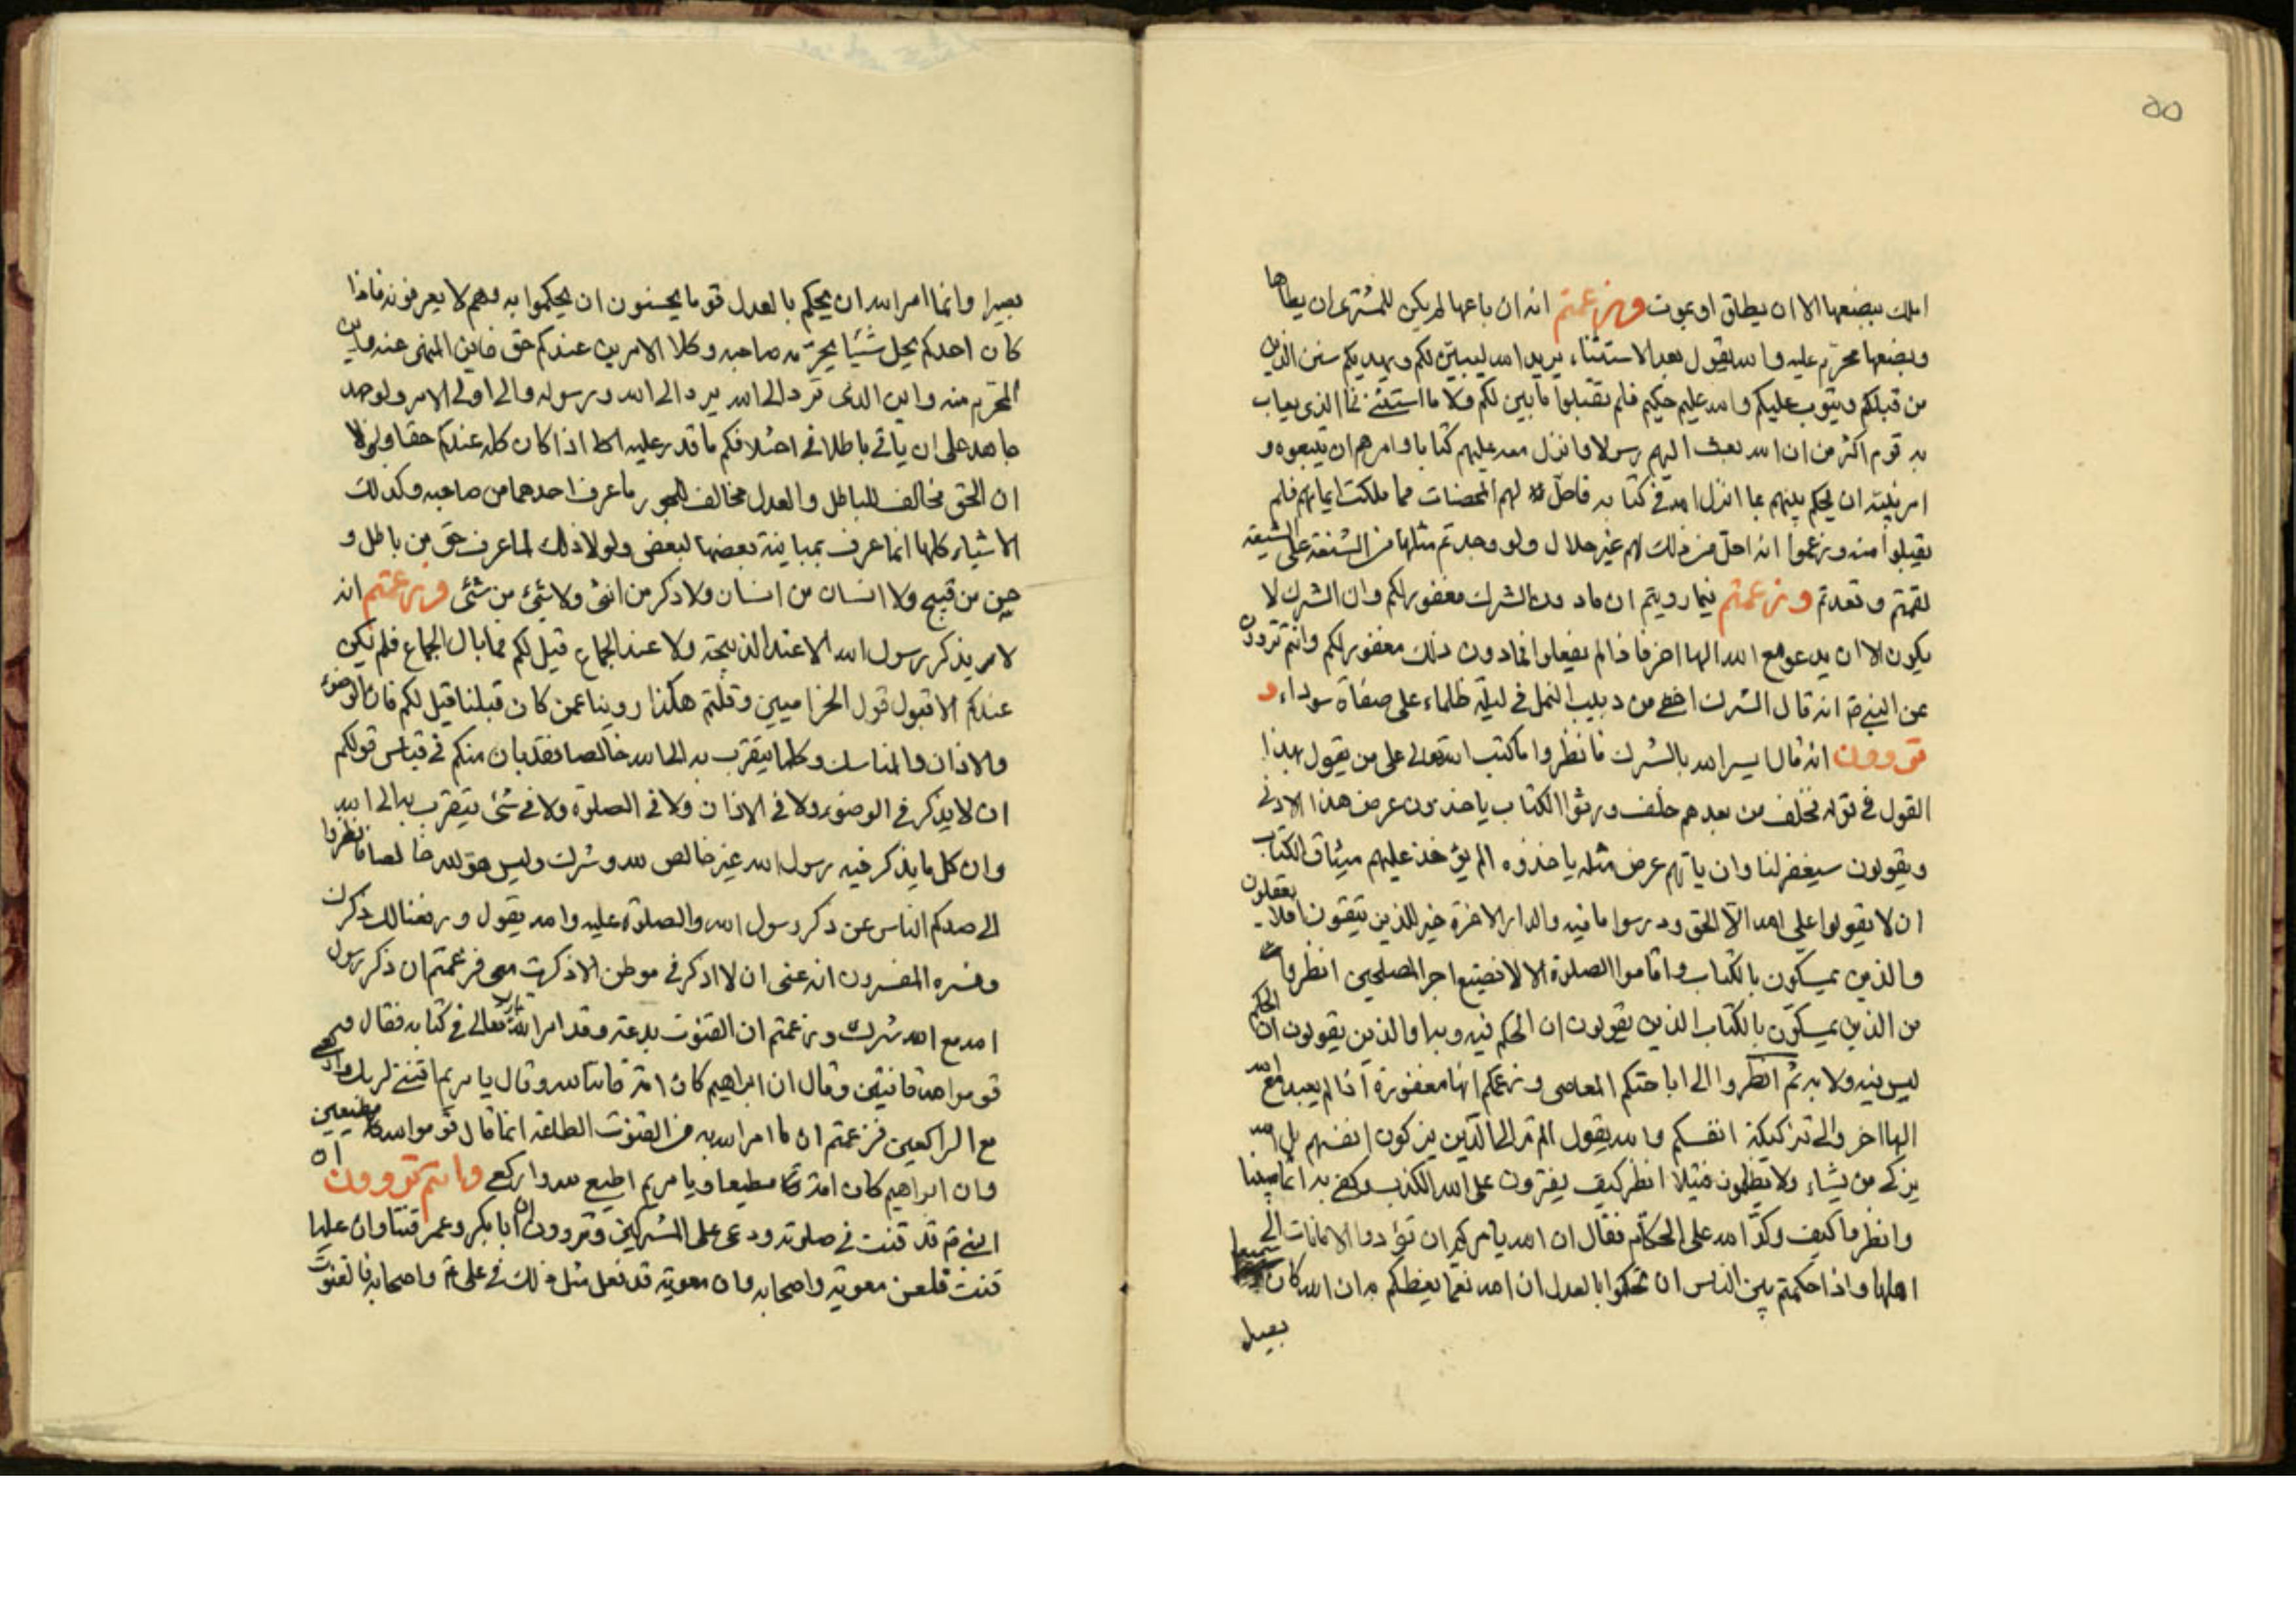 ٥٥
املك ببضعها الا ان يطلق او يموت وزعمتم انه ان باعها لم يكن للمشترى ان يطأها
وبضعها محرّم عليه والله يقول بعد الاستثناء يريد الله ليبيّن لكم ويهديكم سنن الذين
من قبلكم ويتوب عليكم والله عليم حكيم فلم تقبلوا ما بين لكم ولا ما استثنى فما الذى يعاب
به قوم اكثر من ان الله بعث اليهم رسولا وانزل معه عليهم كتابا وامرهم ان يتبعوه و
امر نبيّه ان يحكم بينهم بما انزل الله فى كتابه فاحلّ لهم المحصنات مما ملكت ايمانهم فلم
يقبلوا منه وزعموا ان ما احلّ من ذلك لهم غير حلال ولو وجدتم مثلها من الشنعة على الشيعة
لقمتم وقعدتم وزعمتم فيما رويتم ان ما دون الشرك مغفور لكم وان الشرك لا
يكون الا ان يدعو مع الله الها اخر فاذا لم يفعلوا فما دون ذلك مغفور لكم وانتم تروون
عن النبى انه قال الشرك اخفى من دبيب النمل فى ليلة ظلماء على صفاة سوداء و
تروون انه قال ايسر الله بالشرك فانظروا ما كتب الله تعالى على من يقول بهذا
القول فى قوله فخلف من بعدهم خلف ورثوا الكتاب ياخذون عرض هذا الادنى
ويقولون سيغفر لنا وان ياتهم عرض مثله ياخذوه الم يؤخذ عليهم ميثاق الكتاب
ان لا يقولوا على الله الّا الحق ودرسوا ما فيه والدار الاخرة خير للذين يتقون افلا يعقلون
والذين يمسكون بالكتاب واقاموا الصلوة انا لا نضيع اجر المصلحين انظروا
من الذين يمسكون بالكتاب الذين يقولون ان الحكم فيه وبه او الذين يقولون ان الحكم
ليس فيه ولا به ثم انظروا الى اباحتكم المعاصى وزعمكم انها مغفورة اذا لم يعبد مع الله
الها اخر والى تزكيتكم انفسكم والله يقول الم تر الى الذين يزكون انفسهم بل الله
يزكى من يشاء ولا يظلمون فتيلا انظر كيف يفترون على الله الكذب وكفى به اثما مبينا
وانظروا كيف وكّد الله على الحكام فقال ان الله يامركم ان تؤدوا الامانات الى
اهلها واذا حكمتم بين الناس ان تحكموا بالعدل ان الله نعمّا يعظكم به ان الله كان سميعا
بصيرا
بصيرا وانما امر الله ان يحكم بالعدل قوما يحسنون ان يحكموا به وهم لا يعرفونه فاذا
كان احدكم يحل شيئا يحرّمه صاحبه وكلا الامرين عندكم حق فاين المنهى عنه واين
المحرّم منه واين الذى تردّ الى الله يرد الى الله ورسوله والى اولى الامر ولو جهد
جاهد على ان ياتى باطلا فى اختلافكم ما قدر عليه اذا كان كله عندكم حقا ولولا
ان الحق مخالف للباطل والعدل مخالف للجور ما عرف احدهما من صاحبه وكذلك
الاشياء كلها انما عرف بمباينة بعضها لبعض ولولا ذلك لما عرف حق من باطل و
حسن من قبيح ولا انسان من انسان ولا ذكر من انثى ولا شئ من شئ وزعمتم انه
لا يذكر رسول الله الا عند الذبيحة ولا عند الجماع قيل لكم فما بال الجماع فلم يكن
عندكم الا قبول قول الخزاميين وقلتم هكذا روينا عمن كان قبلنا قيل لكم فان الوضوء
والاذان والمناسك وكلما يتقرب به الى الله خالصا فقد بان منكم فى قياس قولكم
ان لا يذكر فى الوضوء ولا فى الاذان ولا فى الصلوة ولا فى شئ يتقرب به الى الله
وان كل ما يذكر فيه رسول الله غير خالص لله وشرك وليس هو لله خالصا فانظروا
الى صدكم الناس عن ذكر رسول الله والصلوة عليه والله يقول ورفعنا لك ذكرك
وفسره المفسرون انه عنى ان لا اذكر فى موطن الا ذكرت معى فزعمتم ان ذكر رسول
الله مع الله شرك وزعمتم ان القنوت بدعة وقد امر الله تبارك وتعالى فى كتابه فقال و
قوموا لله قانتين وقال ان ابراهيم كان امة قانتا لله وقال يا مريم اقنتى لربك واركعى
مع الراكعين فزعمتم ان ما امر الله به من القنوت الطاعة انما قال قوموا لله مطيعين
وان ابراهيم كان امة مطيعا ويا مريم اطيعى لله واركعى وانتم تروون ان
النبى قد قنت فى صلوته ودعى على المشركين وتروون ان ابا بكر وعمر قنتا وان عليا
قنت فلعن معوية واصحابه وان معوية قد فعل مثل ذلك فى على واصحابه فالقنوت